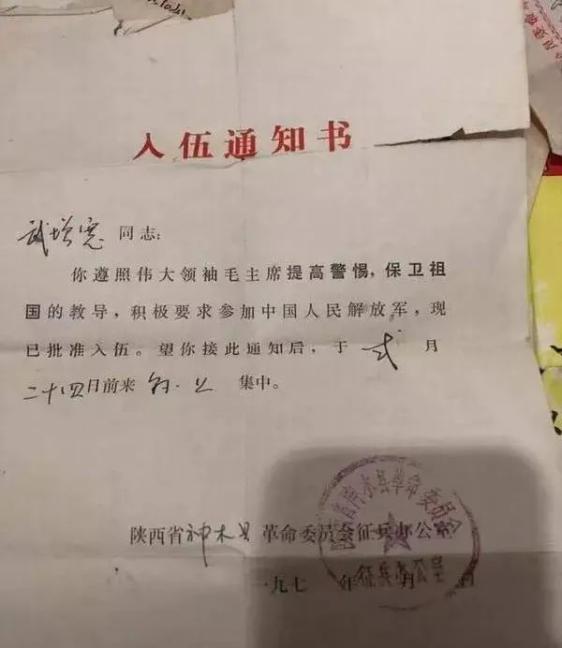 入伍通知书
武增宪 同志：
你遵照伟大领袖毛主席提高警惕，保卫祖
国的教导，积极要求参加中国人民解放军，现
已批准入伍。望你接此通知后，于 贰 月
二十四日前来 集中。
陕西省神木县革命委员会征兵办公室
一九七 年 月 日
陕西省神木县革命委员会
征兵办公室